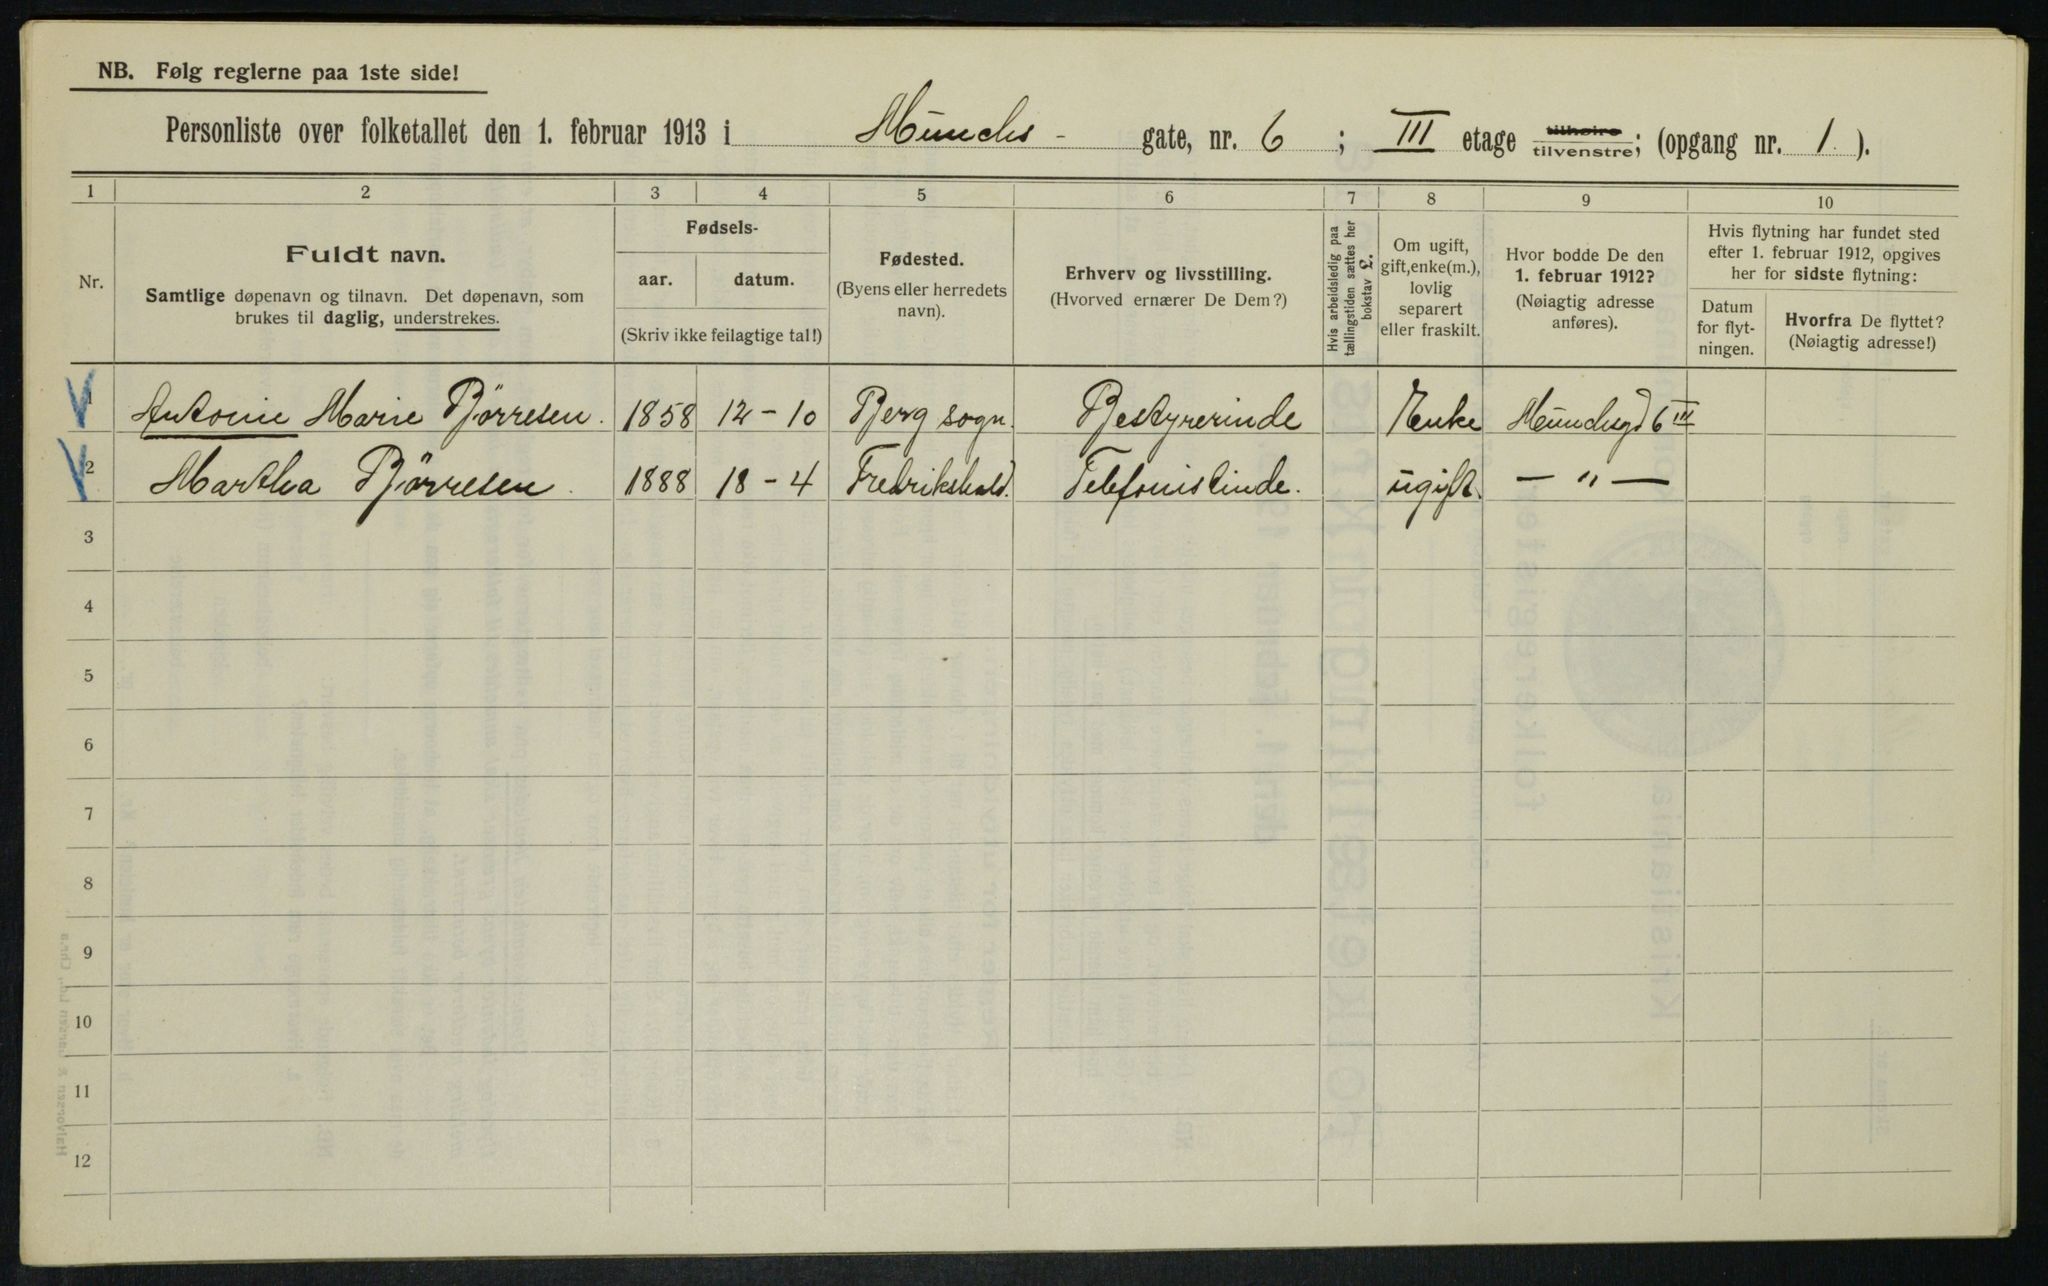 NB. Følg reglerne paa 1ste side!
Personliste over folketallet den 1. februar 1913 i Munchs - gate, nr. 6 ; III etage tilhøire tilvenstre; (opgang nr. 1. ).
1 2 3 4 5 6 7 8 9 10
Nr.
Fuldt navn.
Samtlige døpenavn og tilnavn. Det døpenavn, som
brukes til daglig, understrekes.
Fødsels-
aar. datum.
(Skriv ikke feilagtige tal!)
Fødested.
(Byens eller herredets
navn).
Erhverv og livsstilling.
(Hvorved ernærer De Dem?)
Hvis arbeidsledig paa
tællingstiden sættes her
bokstav L.
Om ugift,
gift, enke(m.),
lovlig
separert
eller fraskilt.
Hvor bodde De den
1. februar 1912?
(Nøiagtig adresse
anføres).
Hvis flytning har fundet sted
efter 1. februar 1912, opgives
her for sidste flytning:
Datum
for flyt-
ningen.
Hvorfra De flyttet?
(Nøiagtig adresse!)
1 Antonie Marie Bjørresen. 1858 12-10 Berg sogn. Bestyrerinde Enke Munchsgd 6 III
2 Martha Bjørresen. 1888 18-4 Fredrikshald. Telefonistinde. ugift. — " —
3
4
5
6
7
8
9
10
11
12